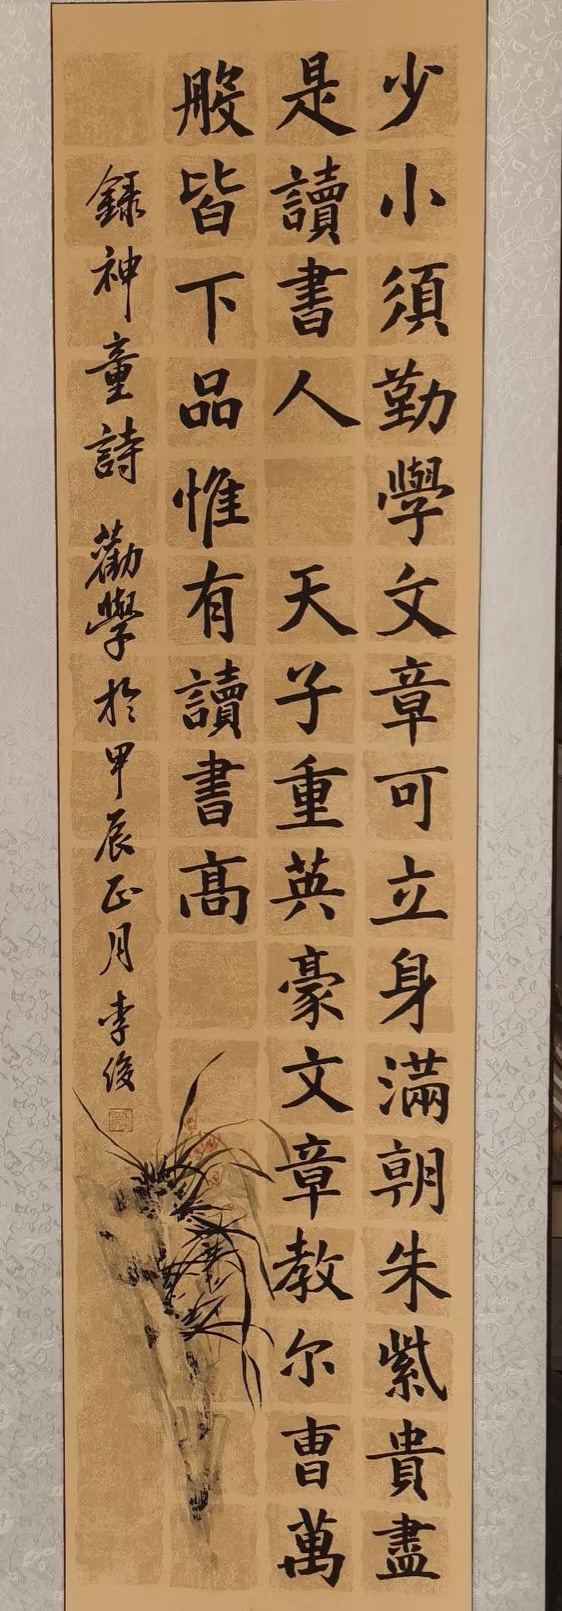 少小須勤學文章可立身滿朝朱紫貴盡
是讀書人 天子重英豪文章教尔曹萬
般皆下品惟有讀書高
錄神童詩 勸學於甲辰正月李俊